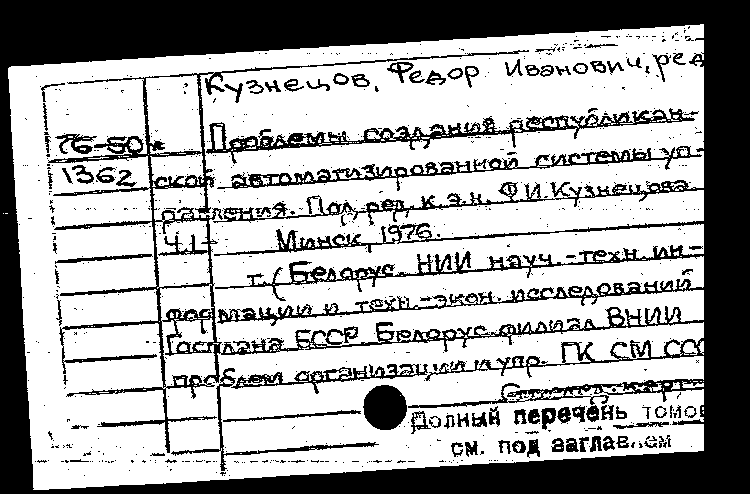 Кузнецов, Федор Иванович, ред
76-50 Проблемы создания республикан-
1362 ской автоматизированной системы уп-
равления. Под ред. к.э.н. Ф.И.Кузнецова.
Ч.1- Минск, 1976.
т. (Белорус. НИИ науч.-техн. ин-
формации и техн.-экон. исследований
Госплана БССР. Белорус. филиал ВНИИ
проблем организации и упр. ГК СМ ССС
Полный перечень томов
см. под заглавием